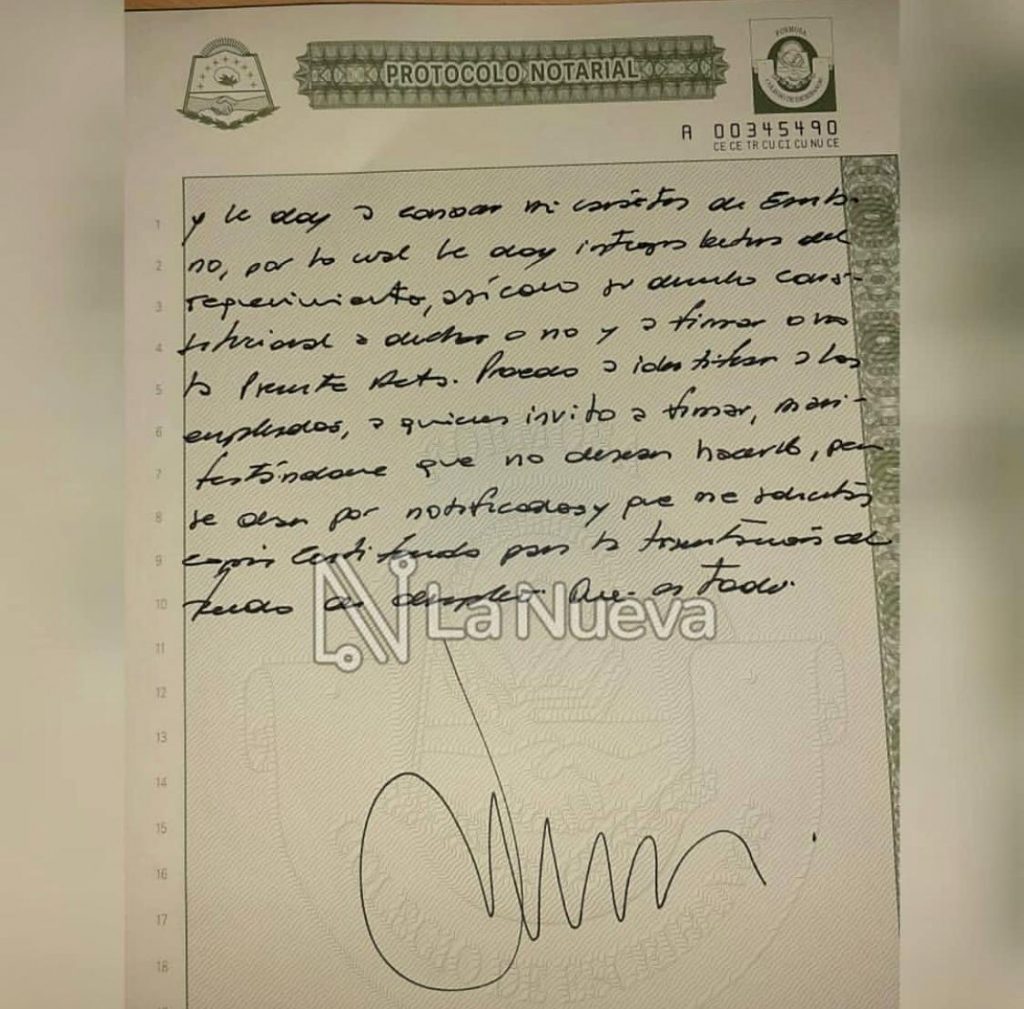 PROTOCOLO NOTARIAL
FORMOSA
COLEGIO DE ESCRIBANOS
A 00345490
CE CE TR CU CI CU NU CE
1 y le doy a conocer mi carácter de Escriba-
2 no, por lo cual le doy integra lectura del
3 requerimiento, así como su derecho cons-
4 titucional a declarar o no y a firmar o no
5 la Presente Acta. Procedo a identificar a los
6 empleados, a quienes invito a firmar, mani-
7 festándome que no desean hacerlo, pero
8 se dan por notificados y que me solicitan
9 copia certificada para la tramitación del
10 fondo de desempleo. Que es todo.
La Nueva
11
12
13
14
15
16
17
18